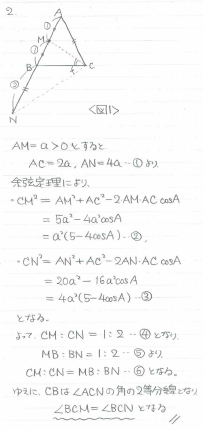 2.
A
①
M
①
B
C
②
N
<図1>
AM=a>0とすると
AC=2a, AN=4a…①より
余弦定理により、
・CM²=AM²+AC²-2・AM・AC cosA
=5a²-4a²cosA
=a²(5-4cosA)…②,
・CN²=AN²+AC²-2AN・AC cosA
=20a²-16a²cosA
=4a²(5-4cosA)…③
となる。
よって、CM:CN=1:2…④となり、
MB:BN=1:2…⑤より、
CM:CN=MB:BN…⑥となる。
ゆえに、CBは∠ACNの角の2等分線となり
∠BCM=∠BCNとなる